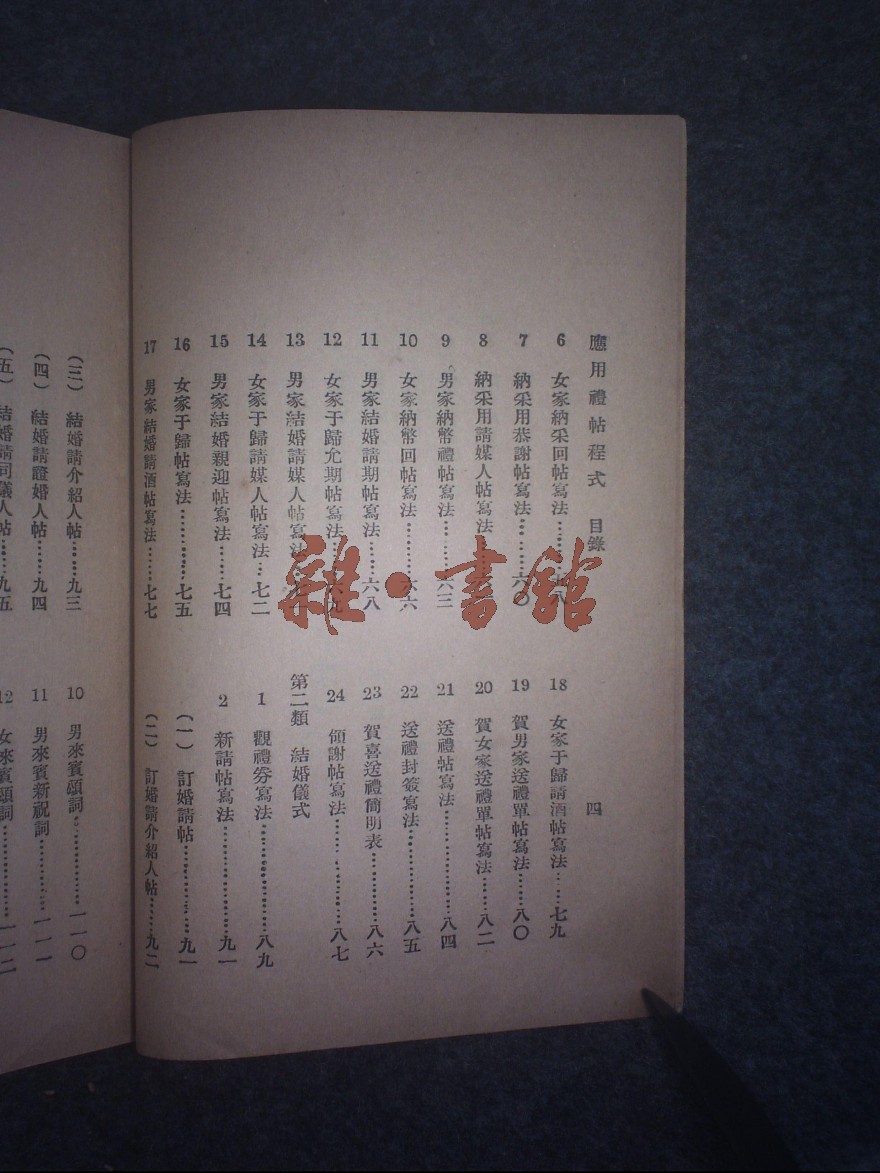 應用禮帖程式 目錄 四
6 女家納采回帖寫法……八
7 納采用恭謝帖寫法……六〇
8 納采用請媒人帖寫法
9 男家納幣禮帖寫法……六三
10 女家納幣回帖寫法……六六
11 男家結婚請期帖寫法……六八
12 女家于歸允期帖寫法……六九
13 男家結婚請媒人帖寫法…七
14 女家于歸請媒人帖寫法…七二
15 男家結婚親迎帖寫法……七四
16 女家于歸帖寫法…………七五
17 男家結婚請酒帖寫法……七七
18 女家于歸請酒帖寫法……七九
19 賀男家送禮單帖寫法……八〇
20 賀女家送禮單帖寫法……八二
21 送禮帖寫法………………八四
22 送禮封簽寫法……………八五
23 賀喜送禮簡明表…………八六
24 領謝帖寫法………………八七
第二類 結婚儀式
1 觀禮券寫法………………八九
2 新請帖寫法………………九一
(一) 訂婚請帖……………九一
(二) 訂婚請介紹人帖……九二
(三) 結婚請介紹人帖……九三
(四) 結婚請證婚人帖……九四
(五) 結婚請司儀人帖……九五
10 男來賓頌詞……………一一〇
11 男來賓新祝詞…………一一一
12 女來賓頌詞……………一一二
雜·書館